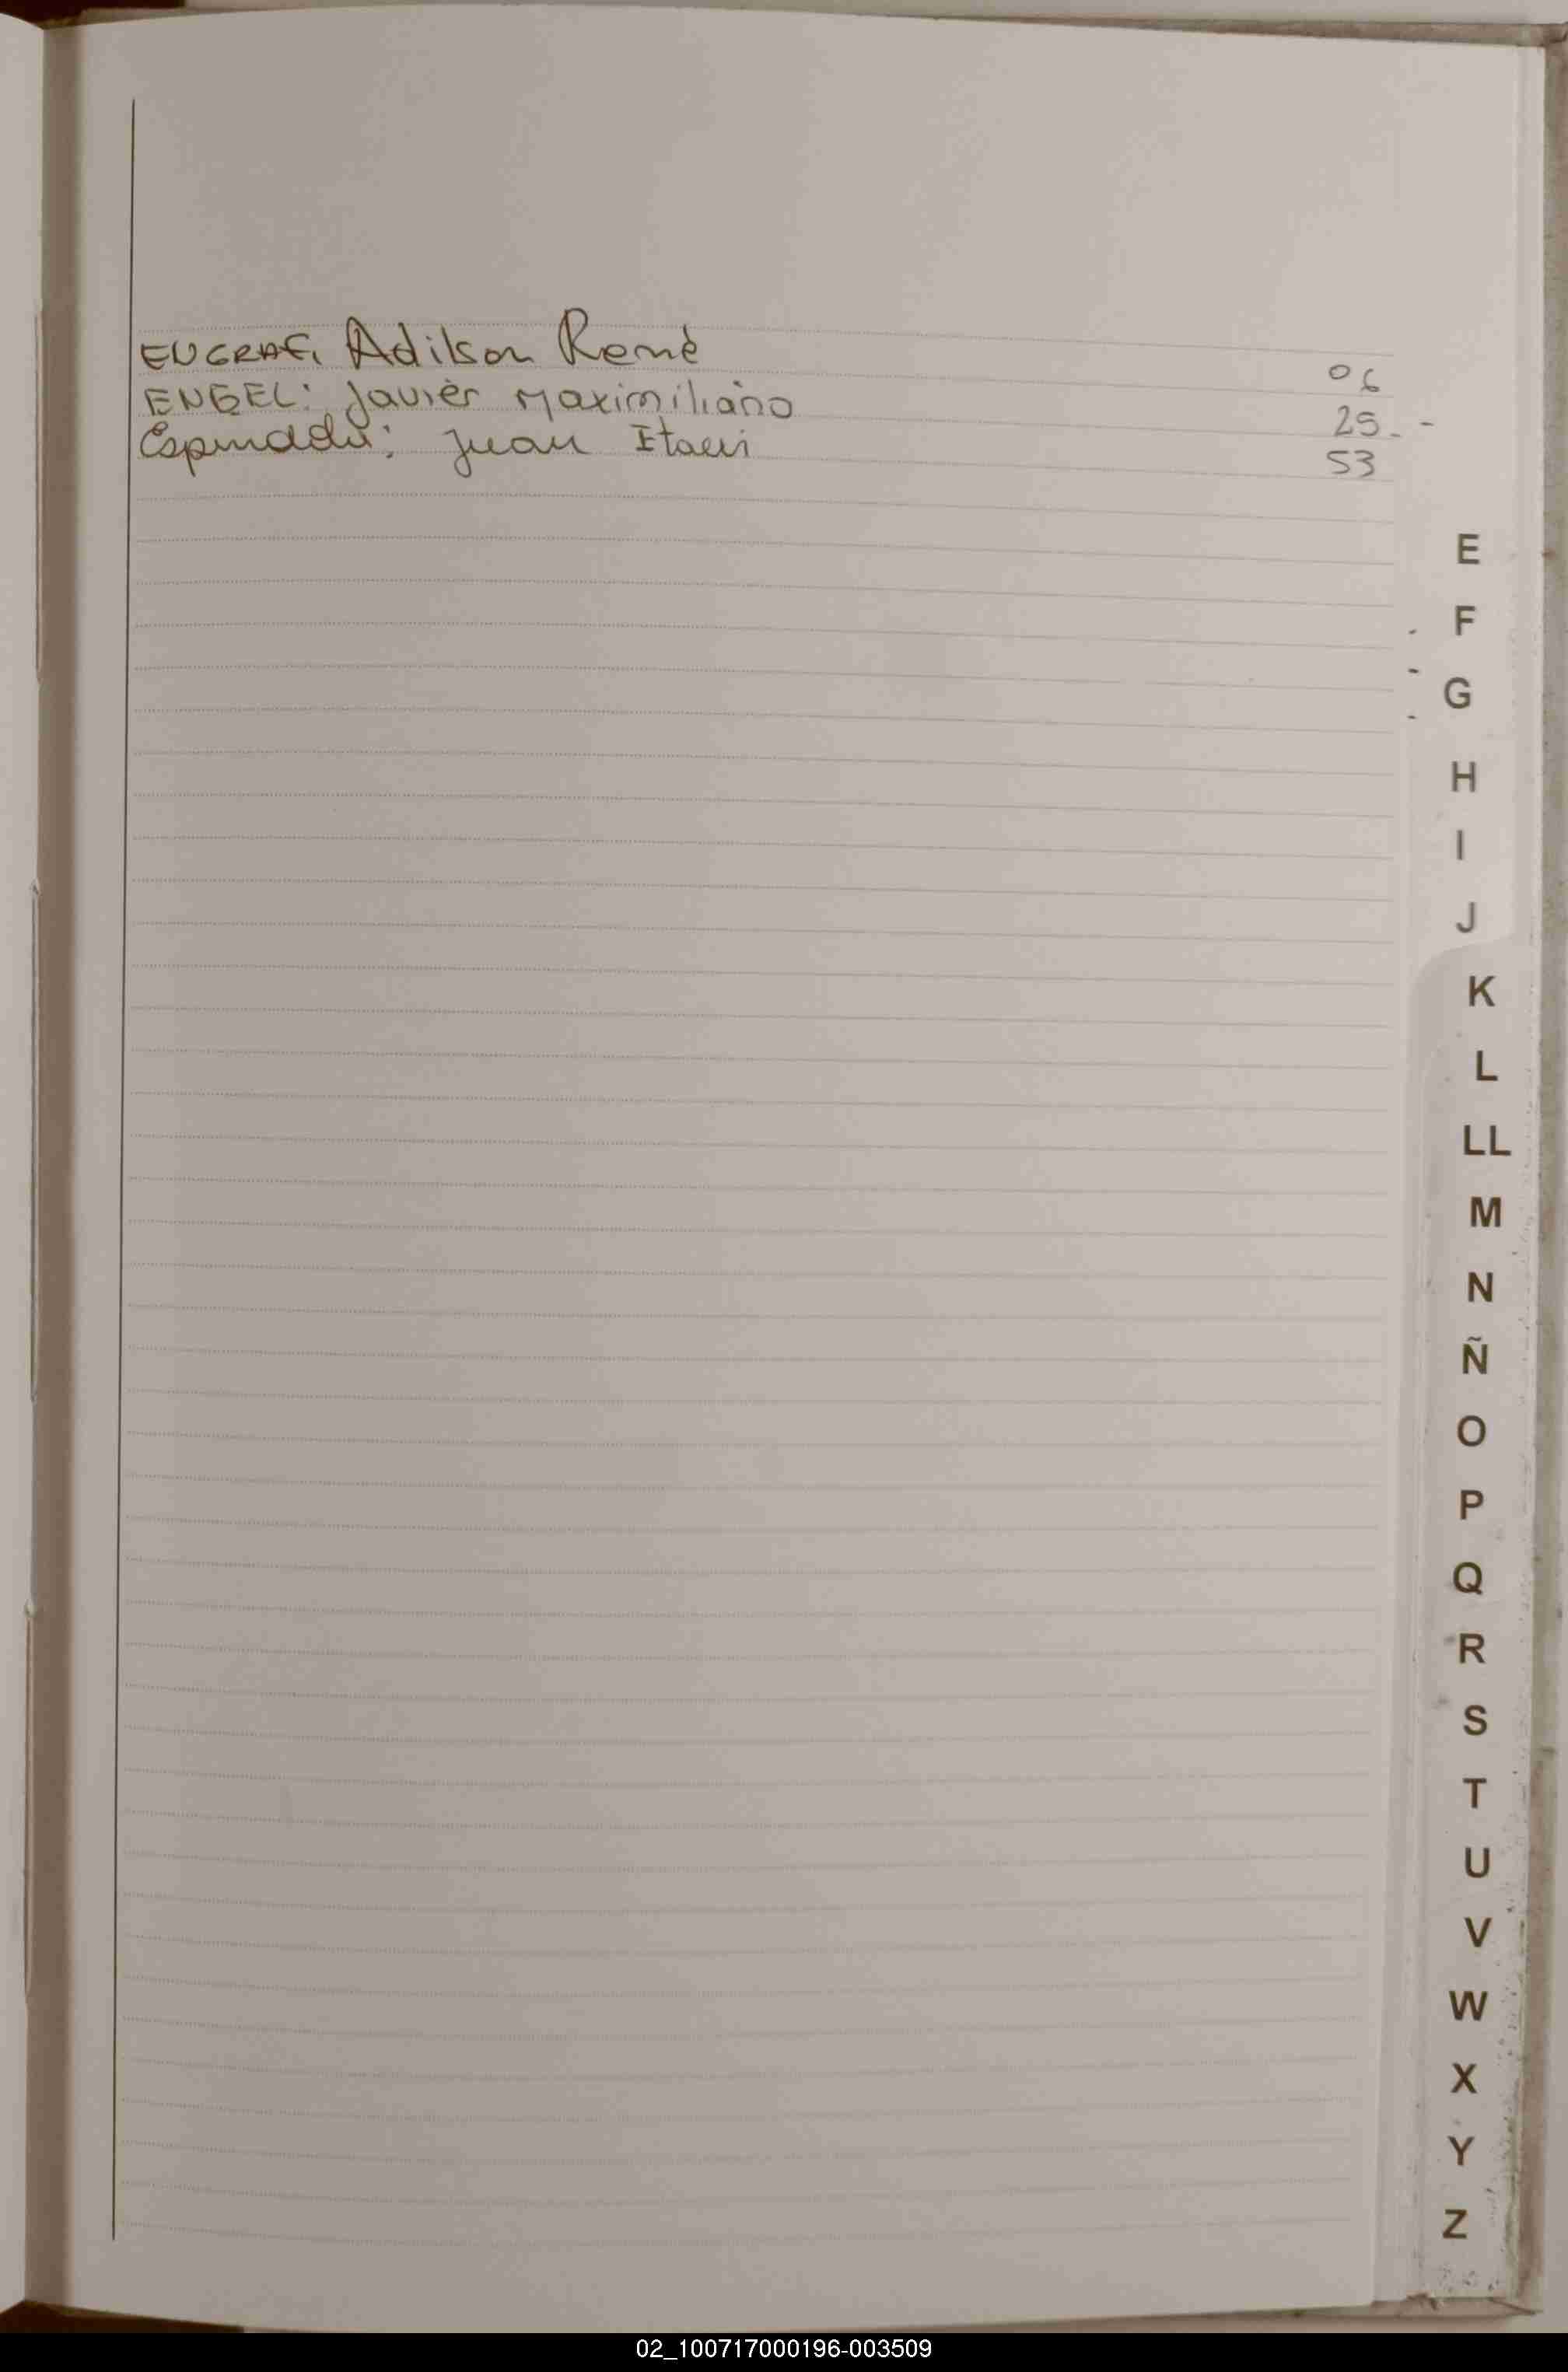 EUGRAF, Adilson René 06
ENGEL: Javier Maximiliano 25. -
Juan 53
E
F
G
H
I
J
K
L
LL
M
N
Ñ
O
P
Q
R
S
T
U
V
W
X
Y
Z
02_100717000196-003509